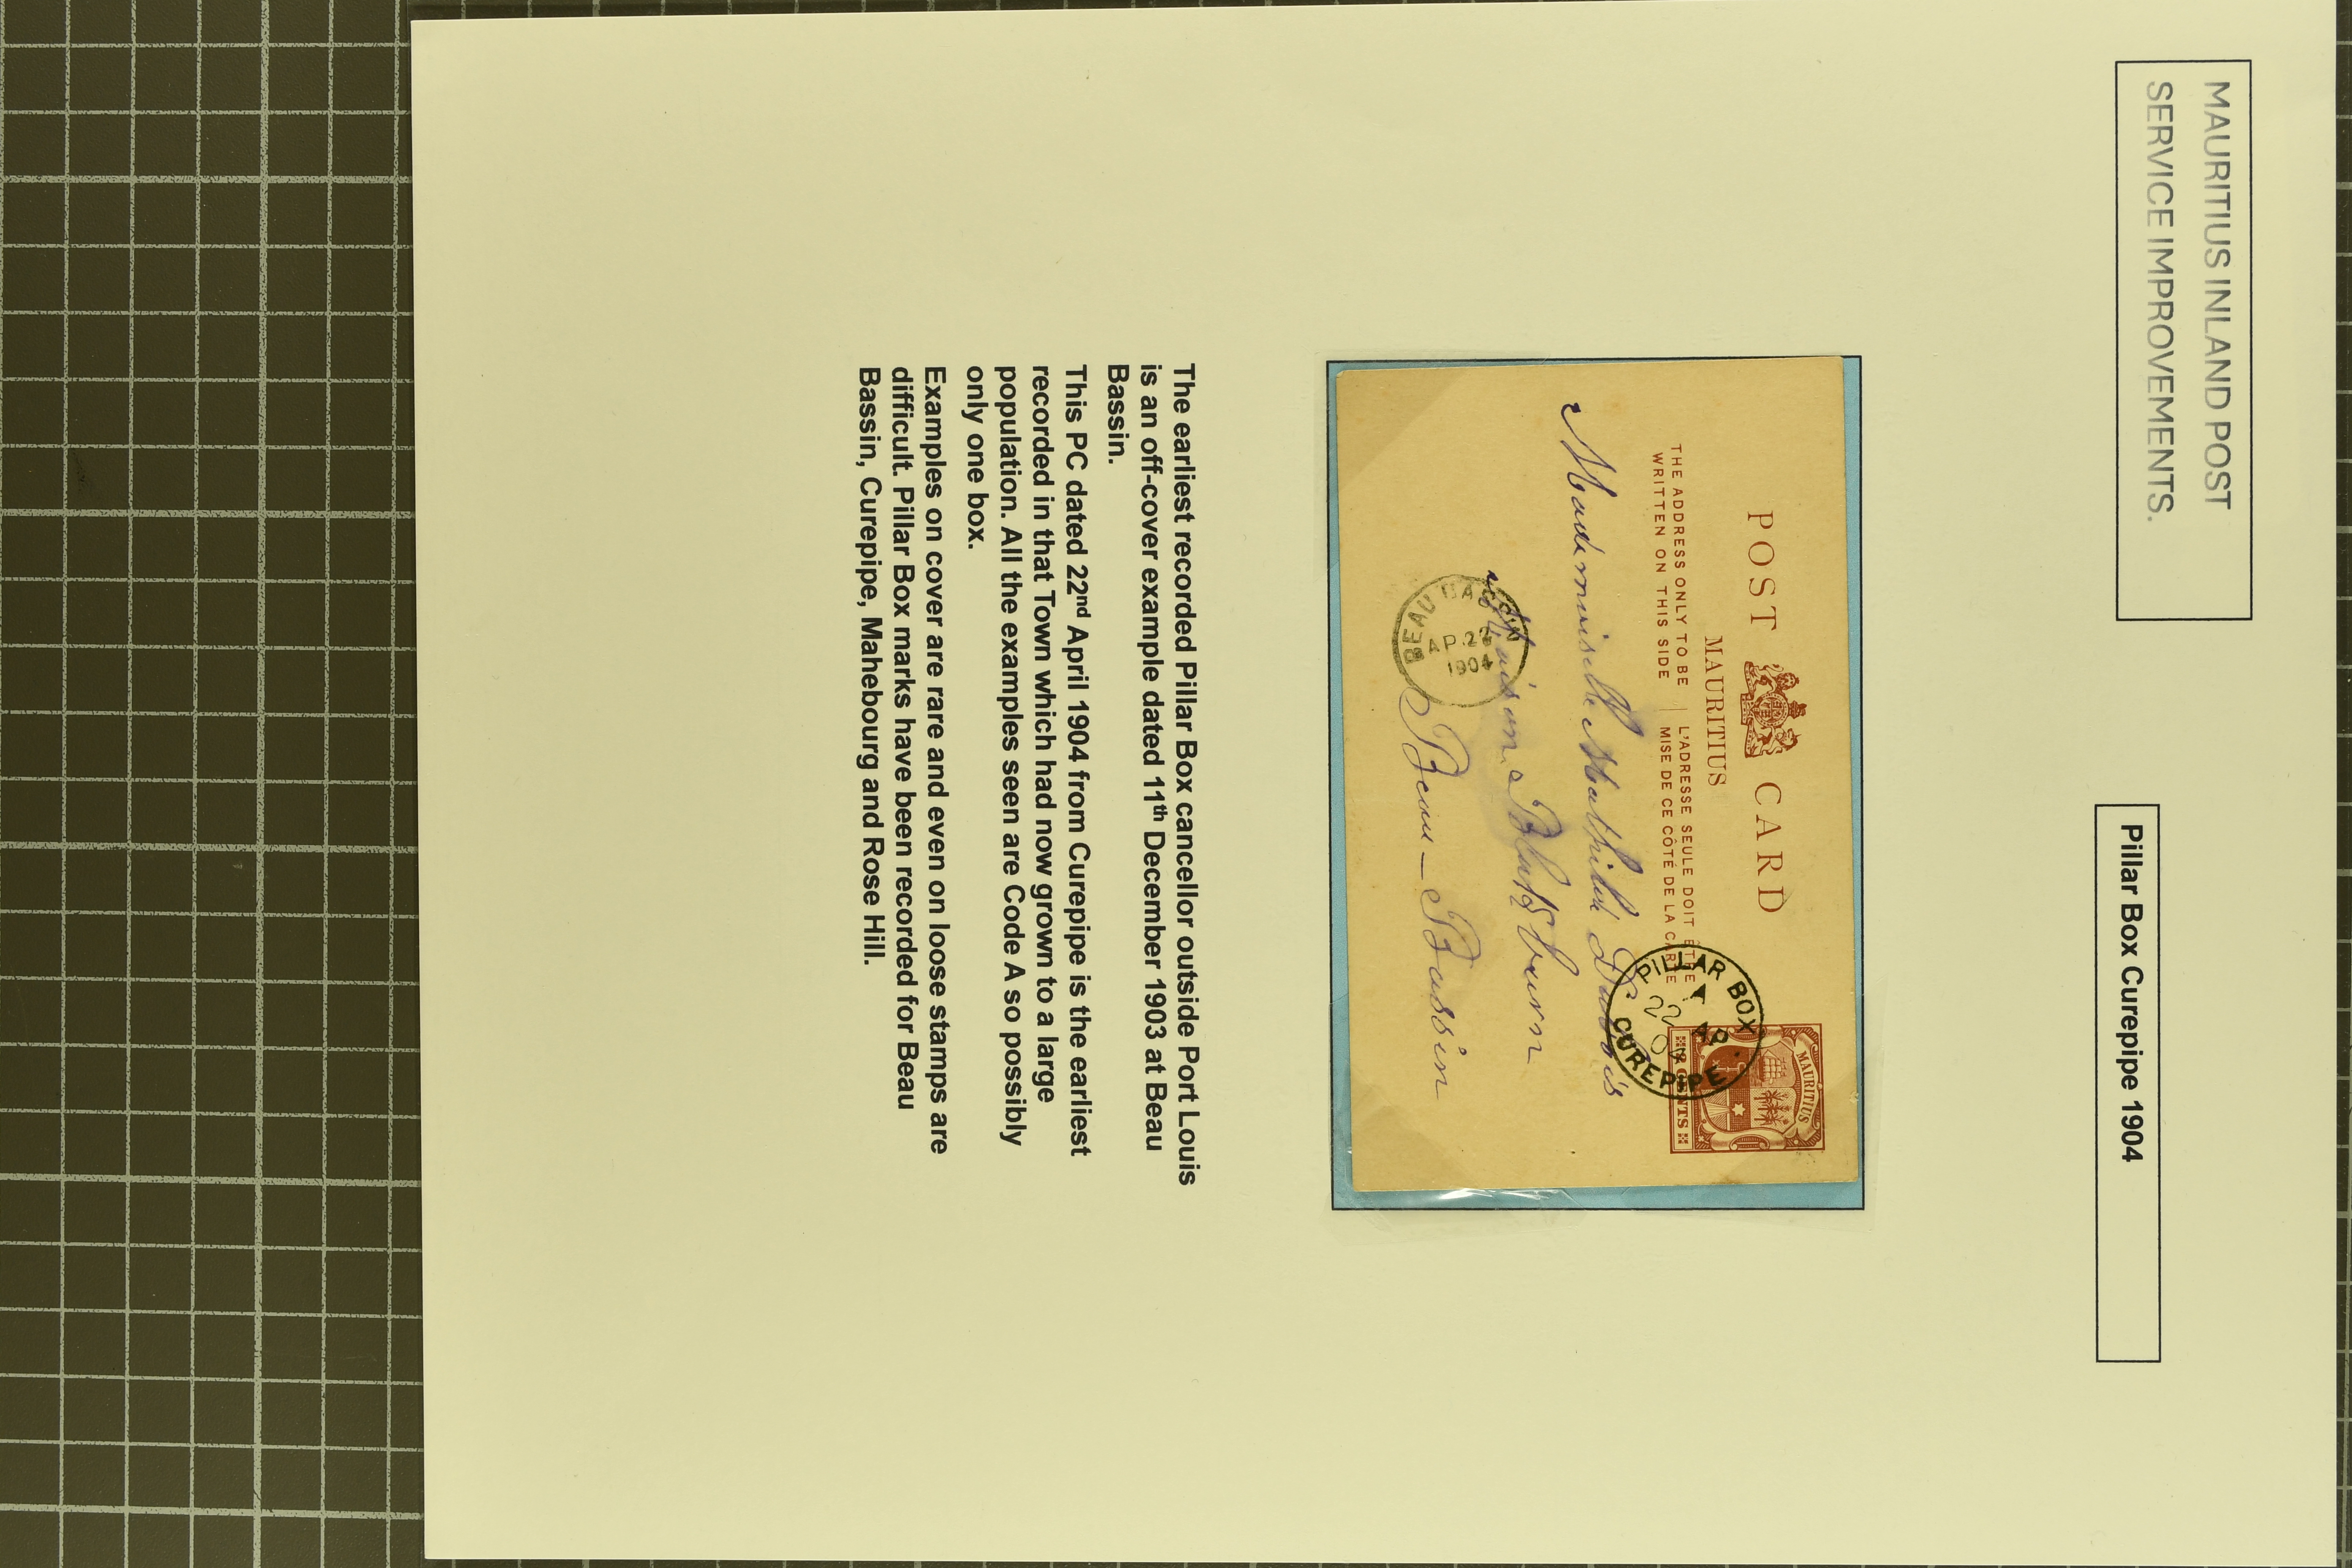 MAURITIUS INLAND POST
SERVICE IMPROVEMENTS.
Pillar Box Curepipe 1904
POST CARD
MAURITIUS
THE ADDRESS ONLY TO BE
WRITTEN ON THIS SIDE
L'ADRESSE SEULE DOIT ÊTRE
MISE DE CE CÔTÉ DE LA CARTE
MAURITIUS
CENTS
PILLAR BOX
A
22 AP.
04
CUREPIPE
Mademoiselle Mathilde Dubois
Maison
Beau-Bassin
BEAU BASSIN
AP 22
1904
The earliest recorded Pillar Box cancellor outside Port Louis
is an off-cover example dated 11th December 1903 at Beau
Bassin.
This PC dated 22nd April 1904 from Curepipe is the earliest
recorded in that Town which had now grown to a large
population. All the examples seen are Code A so possibly
only one box.
Examples on cover are rare and even on loose stamps are
difficult. Pillar Box marks have been recorded for Beau
Bassin, Curepipe, Mahebourg and Rose Hill.